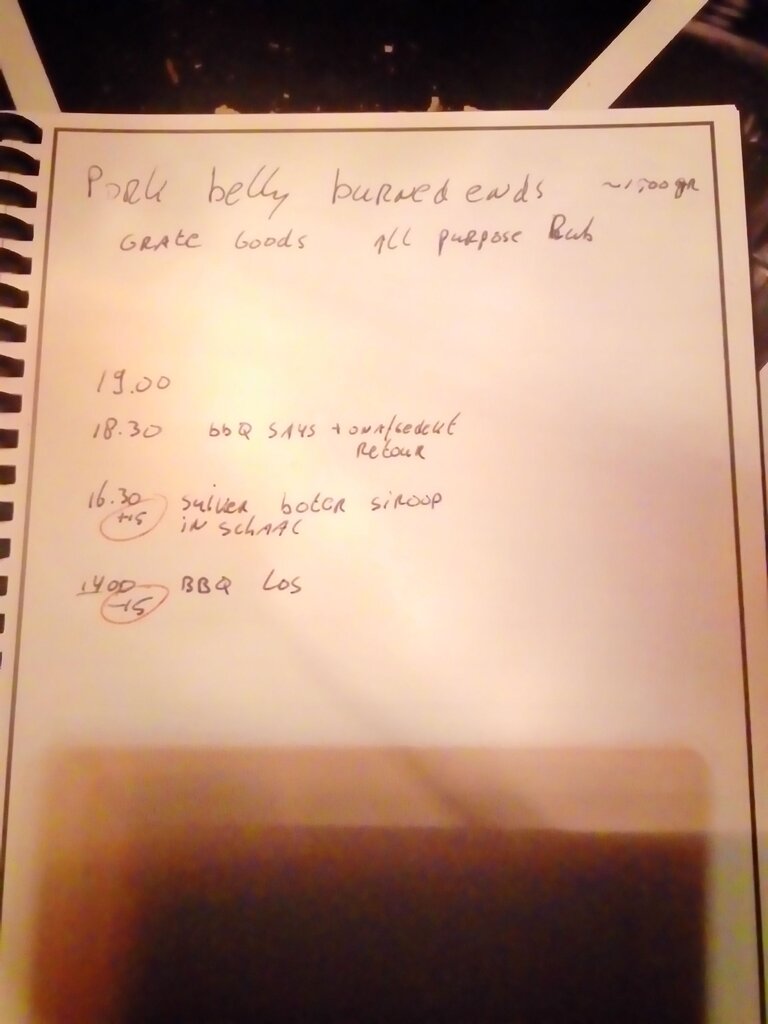 Pork belly burned ends ~1500 gr
Grate Goods All purpose Rub
19.00
18.30 bbq saus + onafgedekt
Retour
16.30 suiker boter siroop
+15 in schaal
1400 BBQ Los
+15